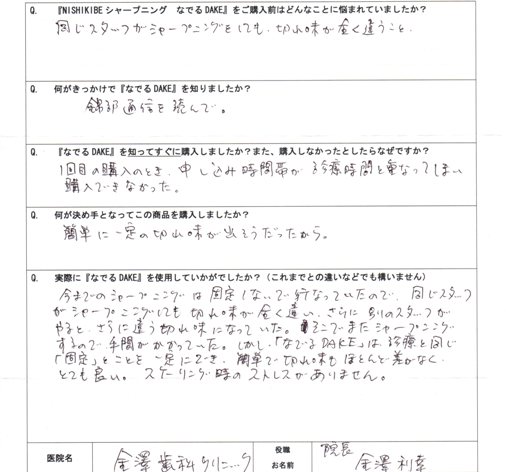 Q. 『NISHIKIBEシャープニング なでるDAKE』をご購入前はどんなことに悩まれていましたか？
同じスタッフがシャープニングをしても、切れ味が全く違うこと。
Q. 何がきっかけで『なでるDAKE』を知りましたか？
錦部通信を読んで。
Q. 『なでるDAKE』を知ってすぐに購入しましたか？また、購入しなかったとしたらなぜですか？
1回目の購入のとき、申し込み時間帯が診療時間と重なってしまい
購入できなかった。
Q. 何が決め手となってこの商品を購入しましたか？
簡単に一定の切れ味が出そうだったから。
Q. 実際に『なでるDAKE』を使用していかがでしたか？（これまでとの違いなどでも構いません）
今までのシャープニングは固定しないで行なっていたので、同じスタッフ
がシャープニングしても切れ味が全く違い、さらに別のスタッフが
やると、さらに違う切れ味になっていた。そこでまたシャープニング
するので、手間がかかっていた。しかし、「なでるDAKE」は、診療と同じ
「固定」とことを一定にでき、簡単で切れ味もほとんど差がなく、
とても良い。スケーリング時のストレスがありません。
医院名 金澤歯科クリニック 役職 院長
お名前 金澤利幸